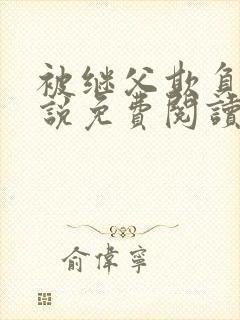 被继父欺負
說免費閱讀
俞偉寧